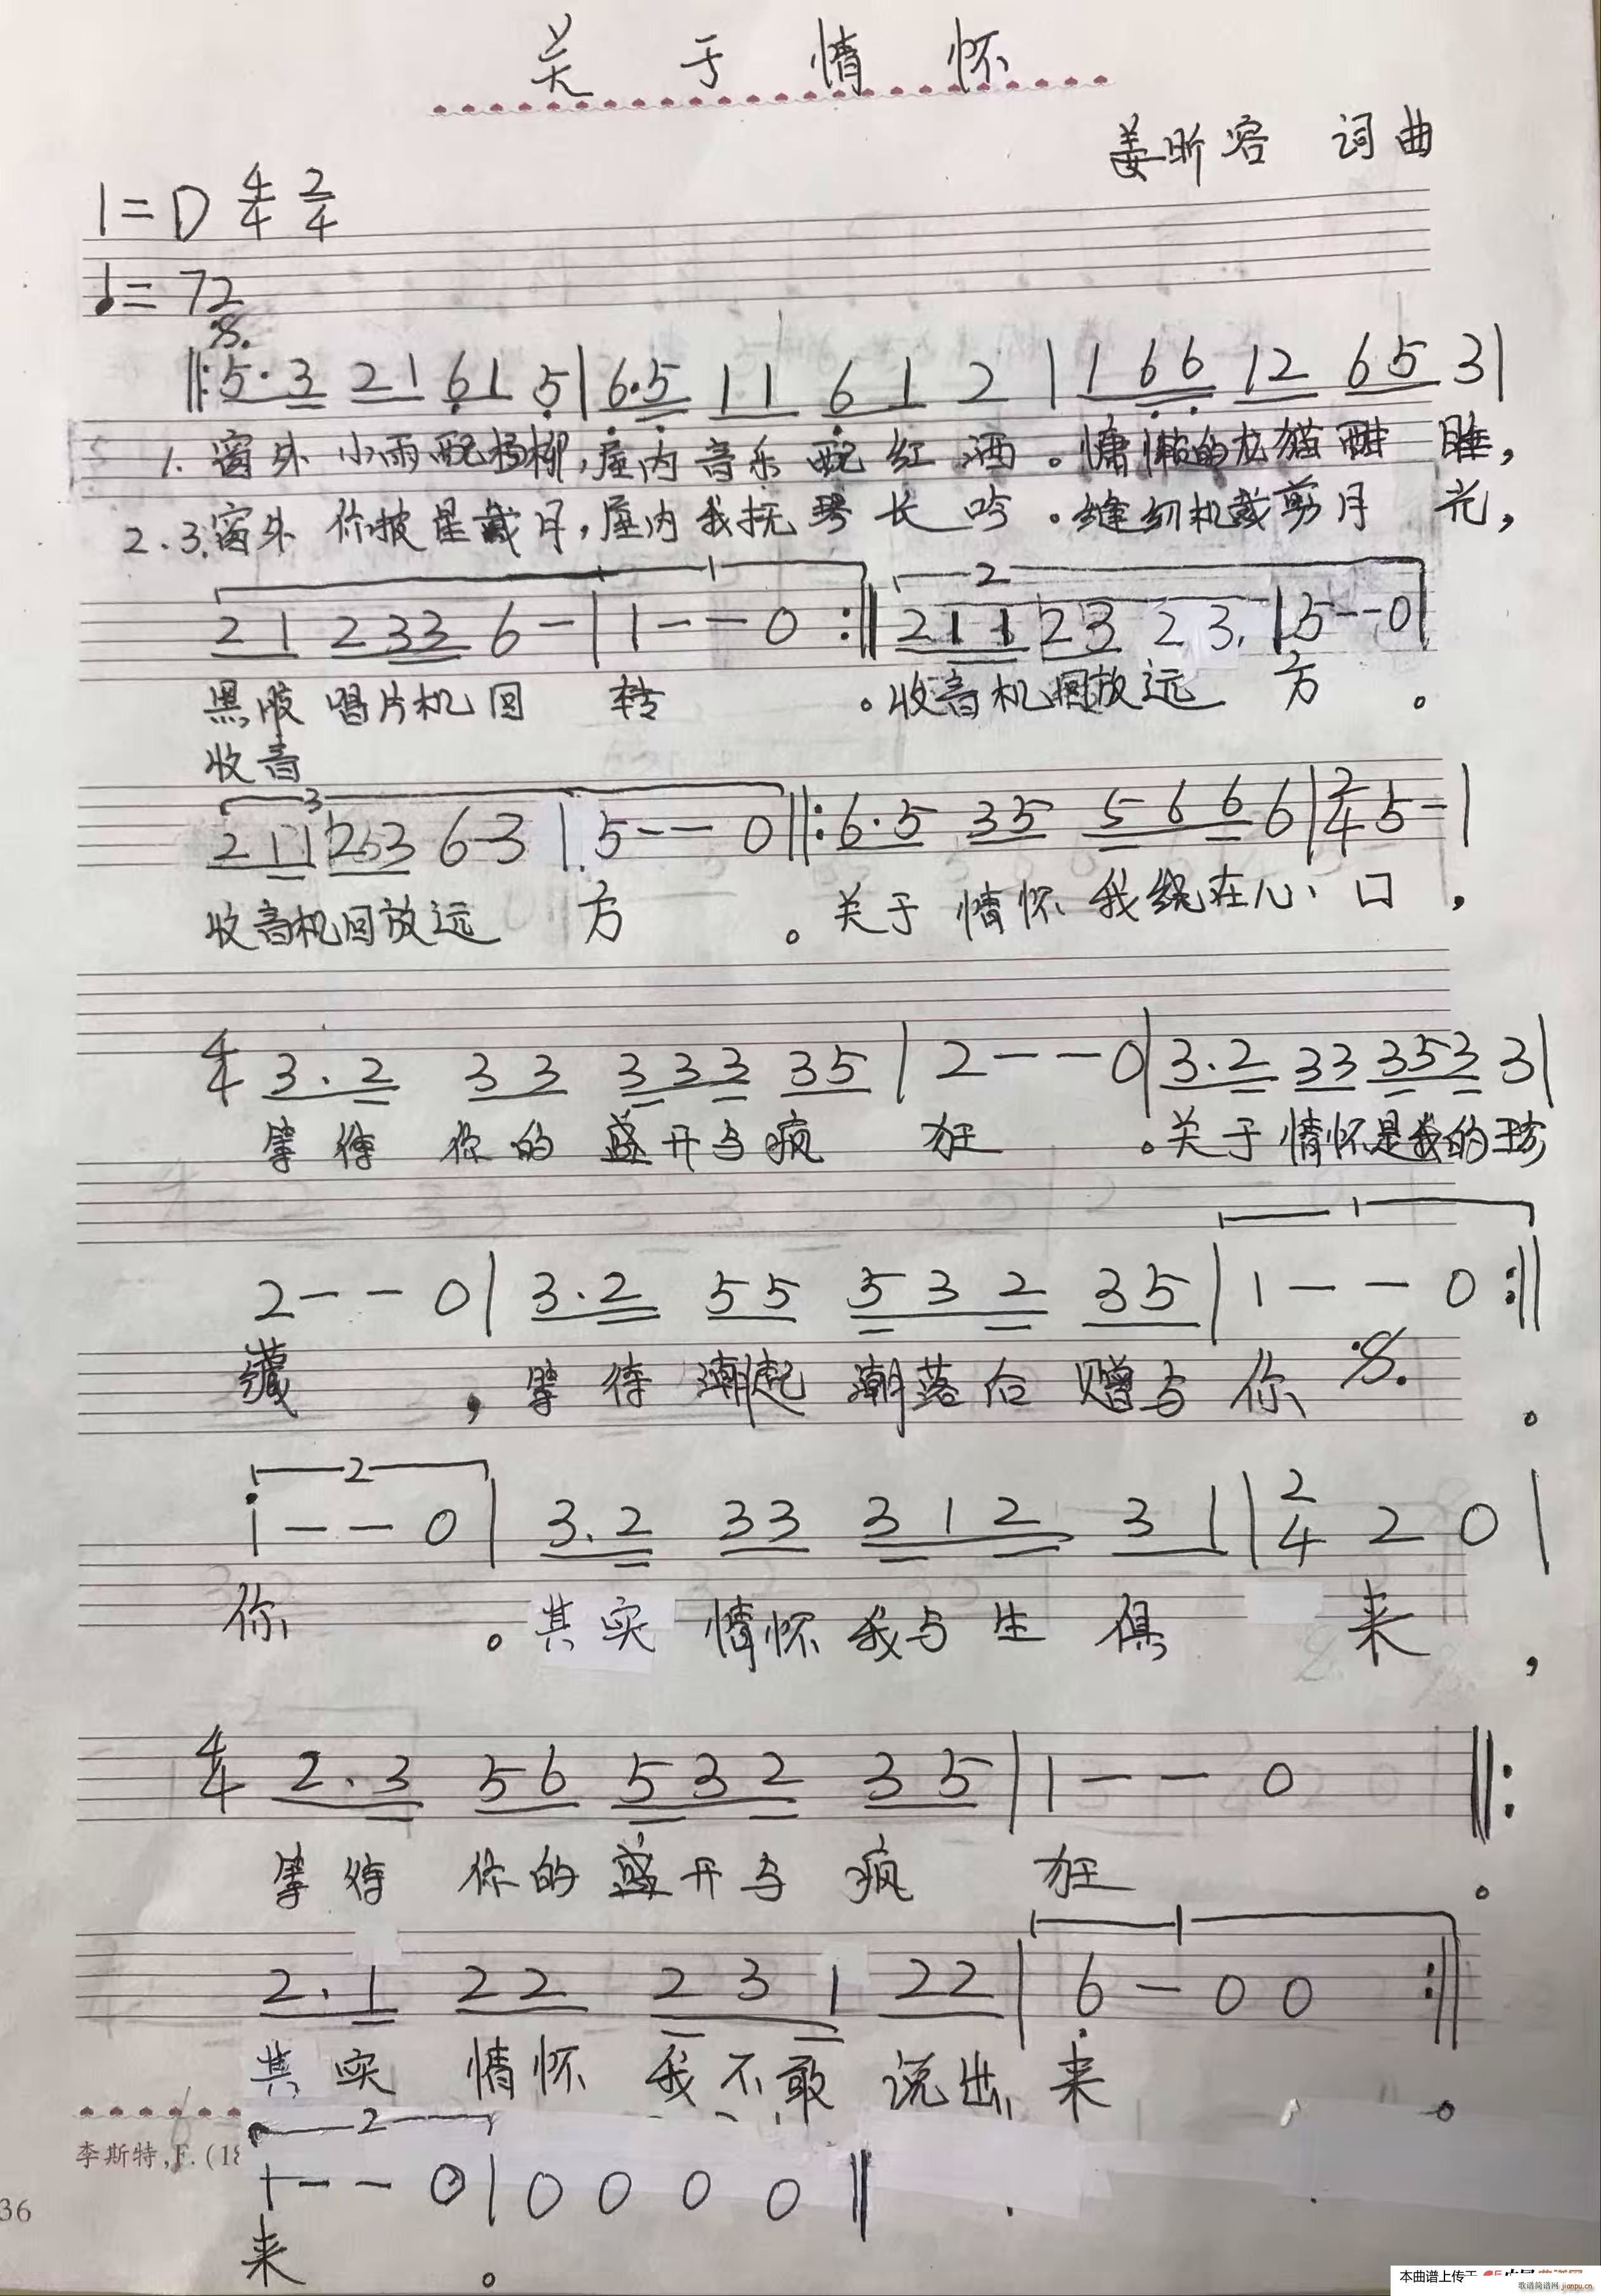 关于情怀
姜昕容 词曲
1=D 4/4 2/4
♩=72
‖: 5·3 21 61 5 | 6·5 11 6 1 2 | 1 66 12 65 3 |
1. 窗外小雨配杨柳,屋内音乐配红酒。慵懒的龙猫酣睡,
2.3.窗外你披星戴月,屋内我抚琴长吟。缝纫机裁剪月光,
1 2
21 233 6- | 1--0 :‖ 211 23 23. | 5--0 |
黑胶唱片机回转。收音机回放远方。
收音
3
211 253 6-3 | 5--0 ‖: 6·5 35 566 6 | 2/4 5- |
收音机回放远方。关于情怀我绕在心口,
4/4 3·2 33 333 35 | 2--0 | 3·2 33 353 3 |
等待你的盛开与疯狂。关于情怀是我的珍
1
2--0 | 3·2 55 532 35 | 1--0 :‖
藏,等待潮起潮落后赠与你。
2
1--0 | 3·2 33 312 31 | 2/4 2 0 |
你。其实情怀我与生俱来,
4/4 2·3 56 532 35 | 1--0 ‖:
等待你的盛开与疯狂。
1
2·1 22 231 22 | 6-00 :‖
其实情怀我不敢说出来。
2
李斯特,F.(18
1--0 | 0000 ‖
36
来。
本曲谱上传于
歌谱简谱网 jianpu.cn